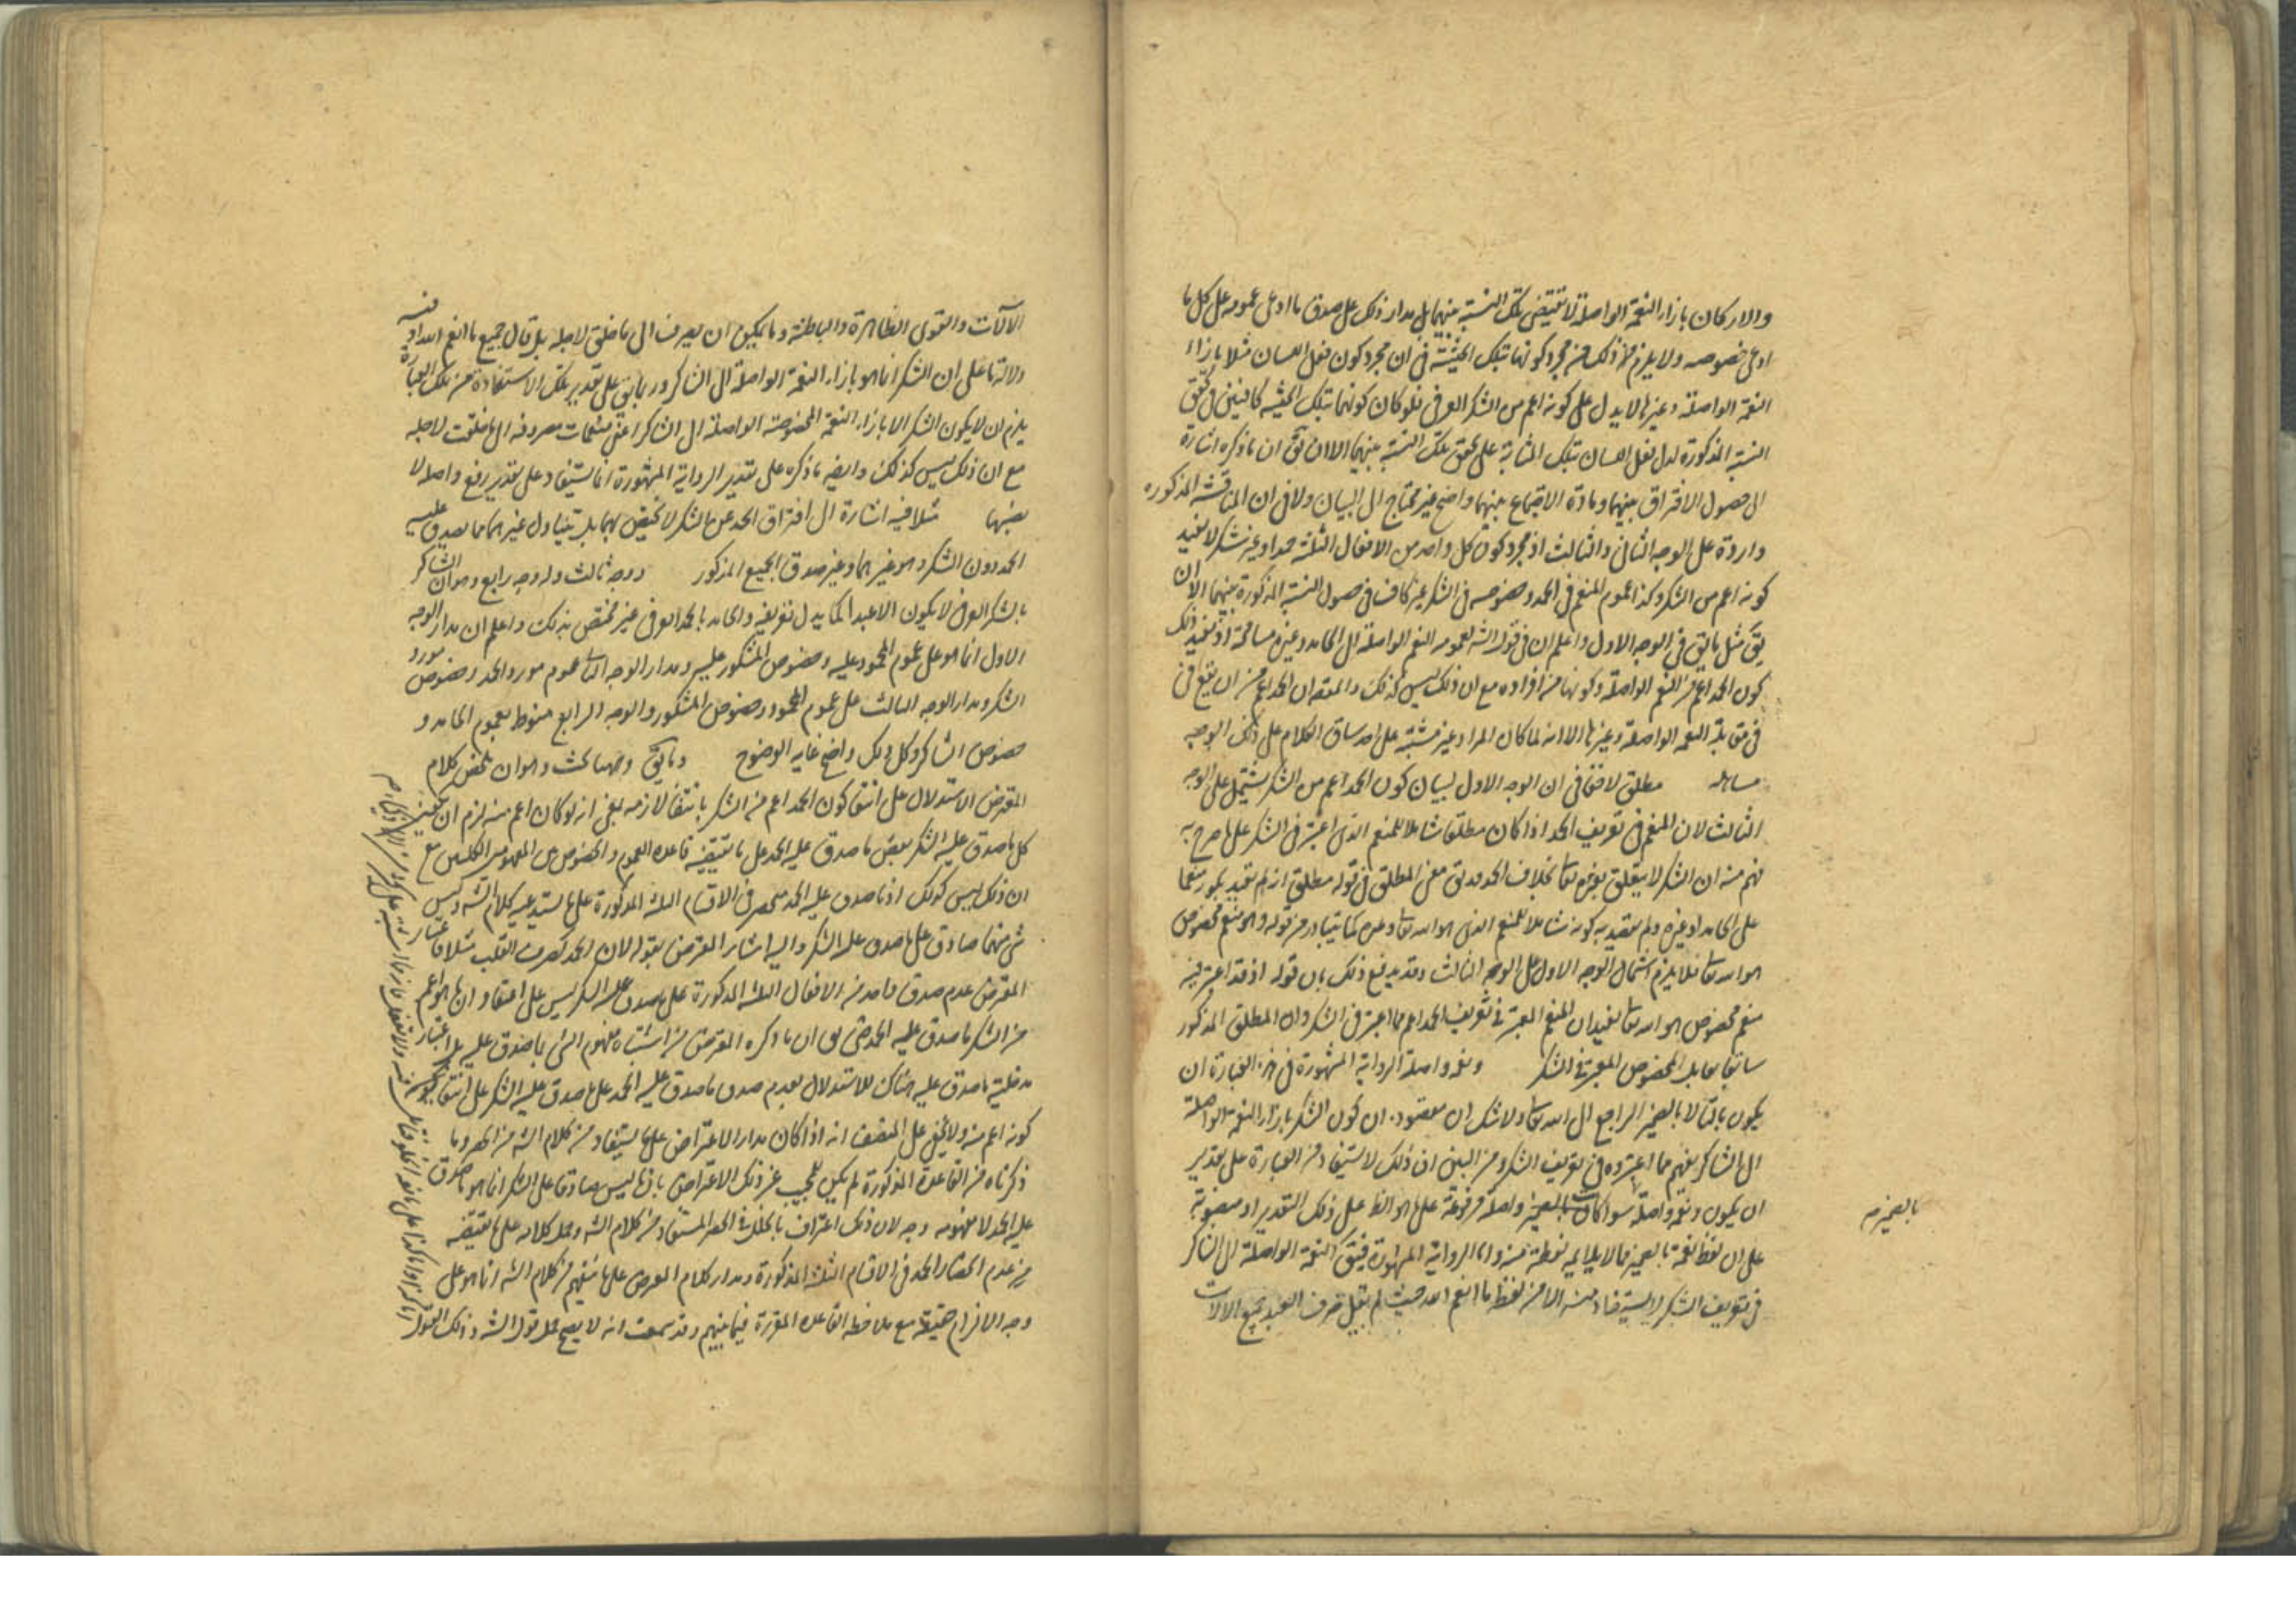 والاركان بازاء النعمة الواصلة لا تقتضى تلك النسبة بينهما بل مدار ذلك على صدق ما ادعى عمومه على كل ما
ادعى خصوصه ولا يلزم من ذلك من مجرد كونهما بتلك الحيثية فى ان مجرد كون فعل اللسان مثلا بازاء
النعمة الواصلة وغيرها لا يدل على كونه اعم من الشكر العرفى فلو كان كونهما بتلك الحيثية كافيين فى تحقق
النسبة المذكورة لدل فعل اللسان بتلك المثابة على تحقق تلك النسبة بينهما الا ان يق ان ما ذكره اشارة
الى حصول الافتراق بينهما ومادة الاجتماع بينهما واضح غير محتاج الى البيان ولا فى ان المناقشة المذكورة
واردة على الوجه الثانى والثالث اذ مجرد كون كل واحد من الافعال الثلثة حمدا وغير شكر لا يفيد
كونه اعم من الشكر وكذا عموم المنعم فى الحمد وخصوصه فى الشكر غير كاف فى حصول النسبة المذكورة بينهما الا ان
يق مثل ما يق فى الوجه الاول واعلم ان فى قول الشه لعمومه النعم الواصلة الى الحامد وغيره مسامحة اذ يفيد ذلك
كون الحمد اعم من النعم الواصلة وكونها من افراده مع ان ذلك ليس كذلك والمقصه ان الحمد اعم من ان يقع فى
فى مقابلة النعمة الواصلة وغيرها الا انه لما كان المراد غير مشتبه على احد ساق الكلام على ذلك الوجه
مساهلة مطلق لا خفاء فى ان الوجه الاول لبيان كون الحمد اعم من الشكر يشتمل على الوجه
الثالث لان المنعم فى تعريف الحمد اذا كان مطلقا شاملا للمنعم الذى اعتبر فى الشكر على ما صرح به
فهم منه ان الشكر لا يتعلق بغيره تعا بخلاف الحمد وقد يق معنى المطلق فى قوله مطلق انه لم يقيد بكونه منعما
على الحامد او غيره ولم يقيد به كونه شاملا للمنعم الذى هو الله تعا وغيره كما يتبادر من قوله وهو منعم مخصوص
هو الله تعا فلا يلزم اشتمال الوجه الاول على الوجه الثالث وقد يدفع ذلك بان قوله اذ قد اعتبر فيه
منعم مخصوص هو الله تعا يفيد ان المنعم المعتبر فى تعريف الحمد اعم مما اعتبر فى الشكر وان المطلق المذكور
سابقا يقابل المخصوص المعتبر فى الشكر ونعمه واصلة الرواية المشهورة فى هذه العبارة ان
يكون بالتاء لا بالضمير الراجع الى الله تعا ولا شك ان مقصوده ان كون الشكر بازاء النعمة الواصلة
الى الشاكر يفهم مما اعتبروه فى تعريف الشكر ومن البين ان ذلك لا يستفاد من العبارة على تقدير
ان يكون ونعمه واصلة سواء كانت بالضمير واصلة مرفوعة على ما هو الظ على ذلك التقدير او منصوبة
على ان لفظ نعمه بالضمير مما لا يلايمه لفظة منه واما الرواية المشهورة فيتق النعمة الواصلة الى الشاكر
فى تعريف الشكر لا يستفاد منه الا من لفظ ما انعم الله حيث لم يقل صرف العبد جميع الالات
بالضمير م
الالات والقوى الظاهرة والباطنة وما يمكن ان يصرف الى ما خلق لاجله بل قال جميع ما انعم الله اذ فيه
دلالة ما على ان الشكر انما هو بازاء النعمة الواصلة الى الشاكر وربما يق على تقدير تلك الاستفادة من تلك العبارة
يلزم ان لا يكون الشكر الا بازاء النعمة المخصوصة الواصلة الى الشاكر اعنى منعمات مصروفة الى ما خلقت لاجله
مع ان ذلك ليس كذلك وايضه ما ذكره على تقدير الرواية المشهورة انما يستفاد على تقدير رفع واصله لا
بعينها مثلا فيه اشارة الى افتراق الحمد عن الشكر لا يختص بهما بل يتناول غيرهما مما يصدق عليه
الحمد دون الشكر وهو غيرهما وغير صدق الجميع المذكور ووجه ثالث وله وجه رابع وهو ان الشاكر
بالشكر العرفى لا يكون الا عبدا كما يدل تعريفه والحامد بالحمد العرفى غير مختص بذلك واعلم ان مدار الوجه
الاول انما هو على عموم المحمود عليه وخصوص المشكور عليه ومدار الوجه الثا عموم مورد الحمد وخصوص مورد
الشكر ومدار الوجه الثالث على عموم المحمود وخصوص المشكور والوجه الرابع منوط بعموم الحامد و
خصوص الشاكر وكل ذلك واضح غاية الوضوح وما يق وههنا بحث وهو ان ملخص كلام
المعترض الاستدلال على انتفاء كون الحمد اعم من الشكر بانتفاء لازمه يعنى انه لو كان اعم منه لزم ان
كل ما صدق عليه الشكر بعض ما صدق عليه الحمد على ما يقتضيه قاعدة العموم والخصوص من المفهومين الكليين مع
ان ذلك ليس كذلك اذ ما صدق عليه الحمد منحصر فى الاقسام الثلثة المذكورة على ما يستدعيه كلام الشه وليس
شى منهما صادق على ما صدق عليه الشكر واليه اشار المعترض بقوله لان الحمد كصرف القلب مثلا
المعترض عدم صدق واحد من الافعال الثلثة المذكورة على ما صدق عليه الشكر ليس على اعتقاد ان ما هو اعم
من الشكر ما صدق عليه الحمد حتى يق ان ما ذكره المعترض من اشتباه مفهوم الشى بما صدق عليه بل اعتبار
مدخلية ما صدق عليه هناك للاستدلال بعدم صدق ما صدق عليه الحمد على ما صدق عليه الشكر على انتفاء
كونه اعم منه ولا يخفى على المنصف انه اذا كان مدار الاعتراض على ما يستفاد من كلام الشه من الحصر وما
ذكرناه من القاعدة المذكورة لم يكن للمجيب عن ذلك الاعتراض بان ما ليس صادقا على الشكر انما هو ما صدق
عليه الحمد لا مفهومه وجه لان ذلك اعتراف بالخلل فى الحصر المستفاد من كلام الشه وحمل كلامه على ما يقتضيه
من عدم انحصار الحمد فى الاقسام الثلثة المذكورة ومدار كلام المعترض على ما يفهم من كلام الشه انما هو على
وجه الالزام حقيقة مع ملاحظة القاعدة المقررة فيما بينهم وقد سمعت انه لا يصح حمل قول الشه وذلك القول